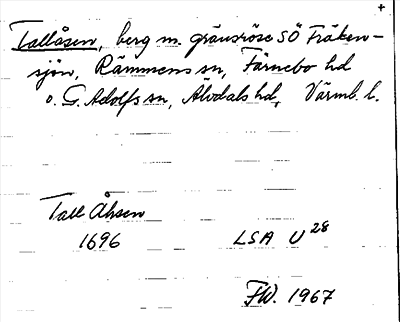 +
Tallåsen, berg m. gränsröse SÖ Fräken-
sjön, Rämmens sn, Färnebo hd
o. G. Adolfs sn, Älvdals hd, Värml. l.
Tall Åhsen
1696
LSA U 28
FW. 1967